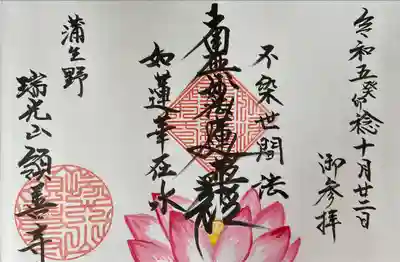 令和五癸卯稔十月廿二日
御参拝
不染世間法
南無妙法蓮華経
如蓮華在水
蒲生野
瑞光山顕善寺